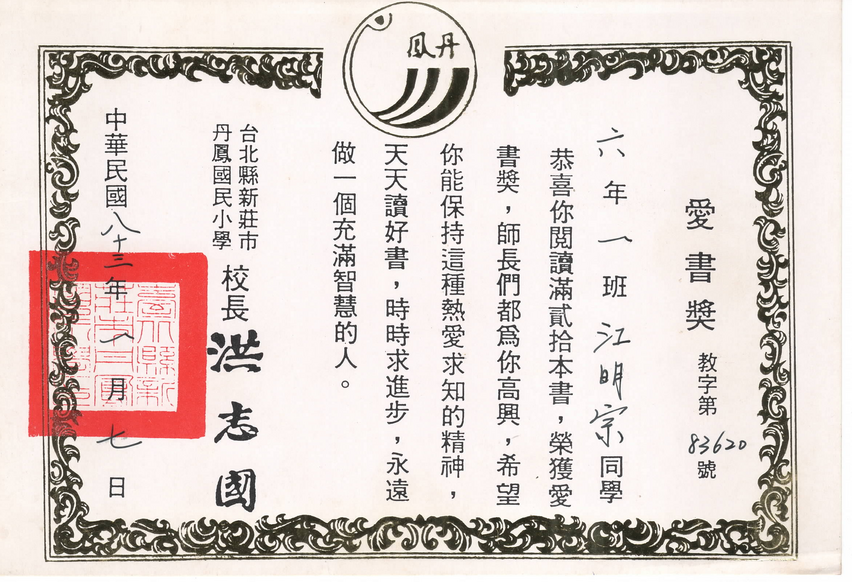 丹鳳
愛書獎 教字第83620號
六年一班江明宗同學
恭喜你閱讀滿貳拾本書，榮獲愛
書獎，師長們都為你高興，希望
你能保持這種熱愛求知的精神，
天天讀好書，時時求進步，永遠
做一個充滿智慧的人。
台北縣新莊市
丹鳳國民小學
校長 洪志國
中華民國八十三年一月七日